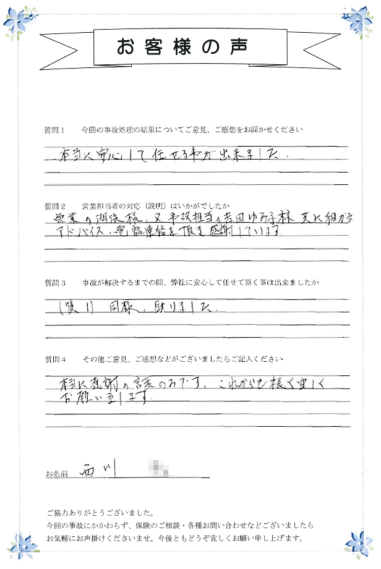 お客様の声
質問１　今回の事故処理の結果についてご意見、ご感想をお聞かせください
本当に安心して任せる事が出来ました.
質問２　営業担当者の対応（説明）はいかがでしたか
営業の 様, 又事故担当の吉田ゆみ子様 実に細かな
アドバイス、電話連絡を頂き感謝しています
質問３　事故が解決するまでの間、弊社に安心して任せて頂く事は出来ましたか
同様, 助りました.
質問４　その他ご意見、ご感想などがございましたらご記入ください
本当に感謝の言葉のみです. これからも 宜しく
お願い致します
お名前　西川
ご協力ありがとうございました。
今回の事故にかかわらず、保険のご相談・各種お問い合わせなどございましたら
お気軽にお声掛けくださいませ。今後ともどうぞ宜しくお願い申し上げます。